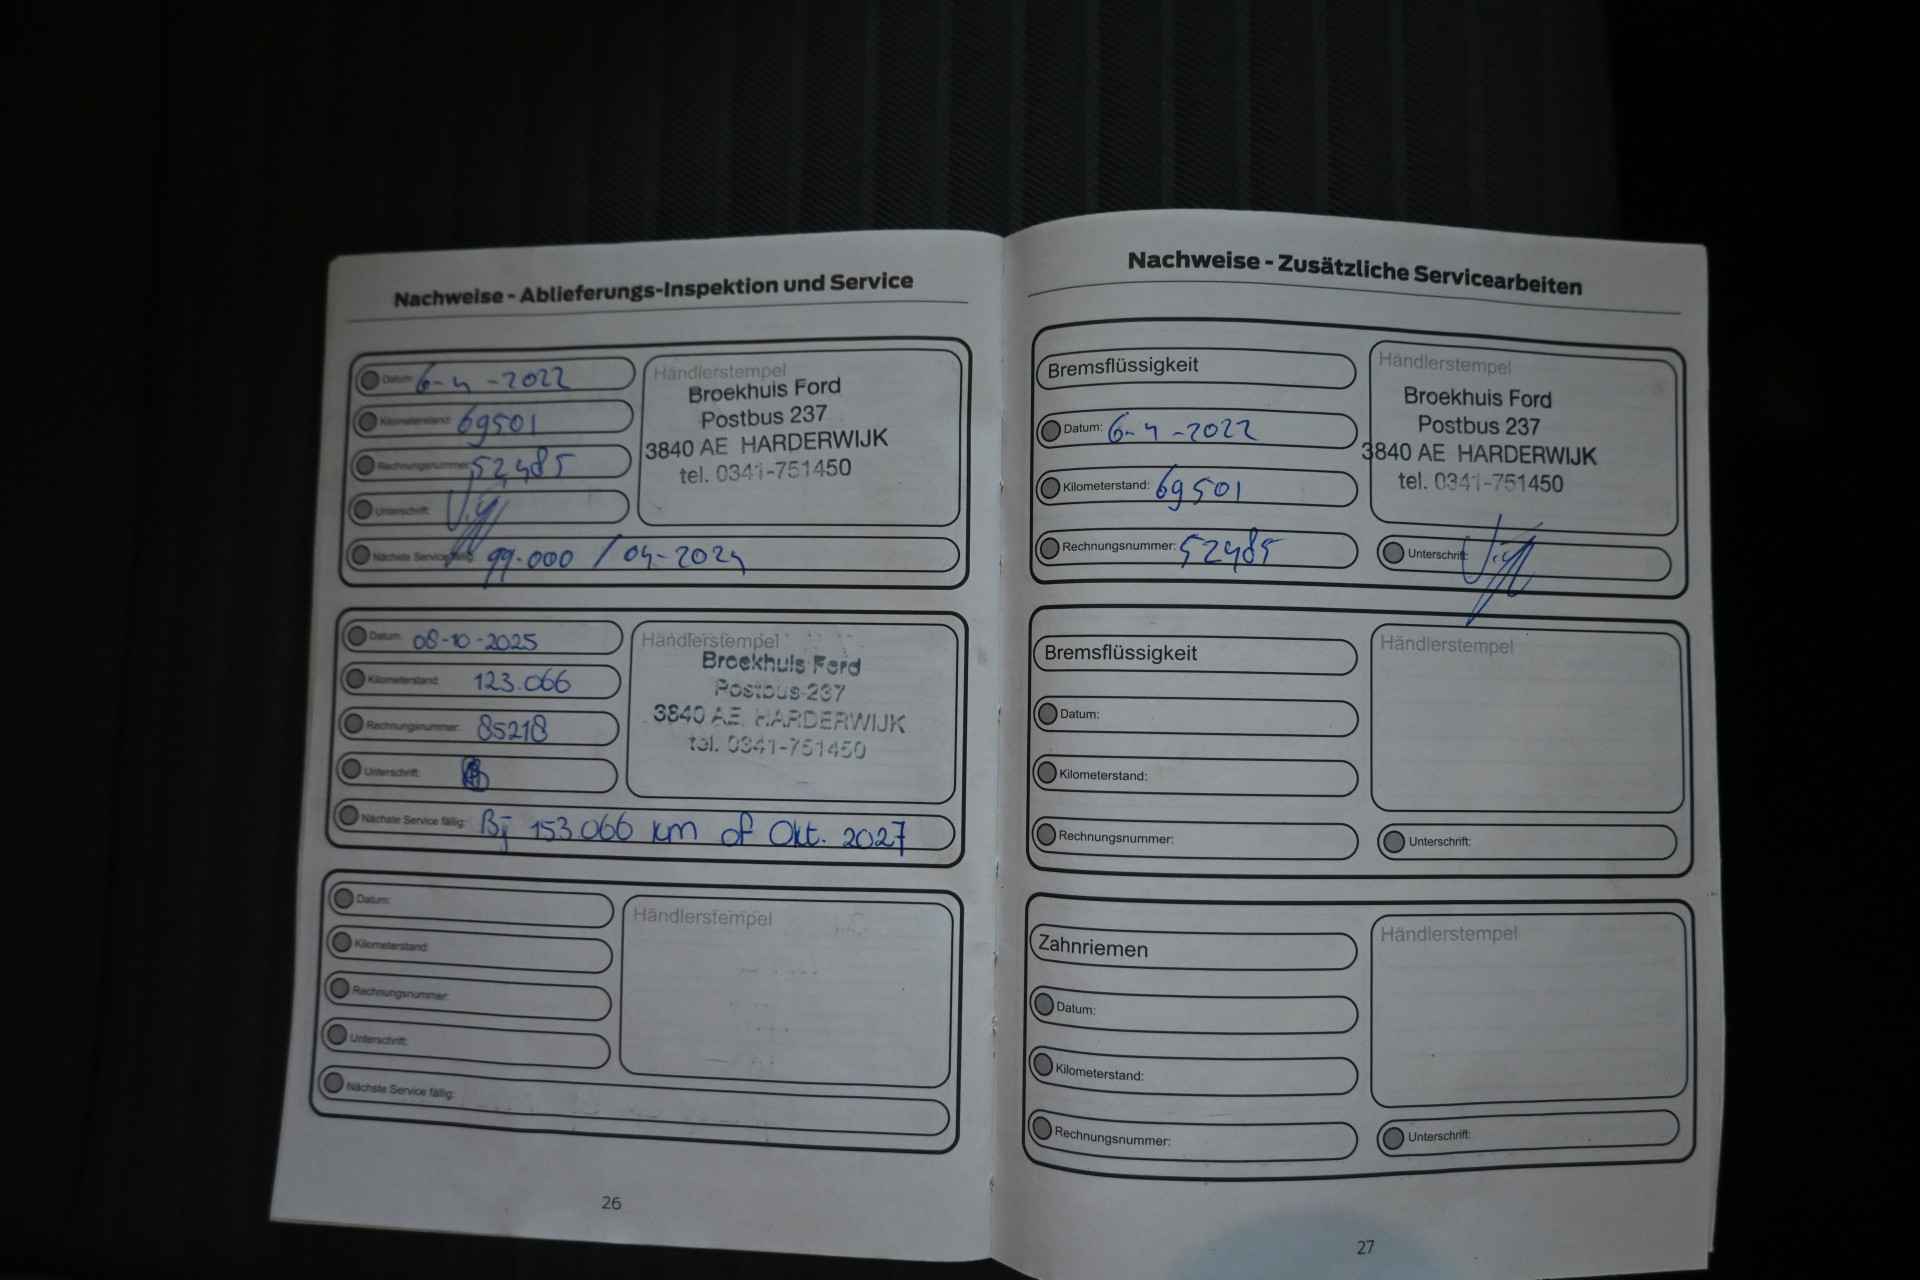 Nachweise - Ablieferungs-Inspektion und Service
Datum: 6-4-2022
Kilometerstand: 69501
Rechnungsnummer: 52485
Unterschrift:
Nächste Service fällig: 99.000 / 04-2024
Händlerstempel
Broekhuis Ford
Postbus 237
3840 AE HARDERWIJK
tel. 0341-751450
Datum: 08-10-2025
Kilometerstand: 123.066
Rechnungsnummer: 85218
Unterschrift:
Nächste Service fällig: Bij 153.066 km of Okt. 2027
Händlerstempel
Broekhuis Ford
Postbus 237
3840 AE HARDERWIJK
tel. 0341-751450
Datum:
Kilometerstand:
Rechnungsnummer:
Unterschrift:
Nächste Service fällig:
Händlerstempel
26
Nachweise - Zusätzliche Servicearbeiten
Bremsflüssigkeit
Datum: 6-4-2022
Kilometerstand: 69501
Rechnungsnummer: 52485
Händlerstempel
Broekhuis Ford
Postbus 237
3840 AE HARDERWIJK
tel. 0341-751450
Unterschrift:
Bremsflüssigkeit
Datum:
Kilometerstand:
Rechnungsnummer:
Händlerstempel
Unterschrift:
Zahnriemen
Datum:
Kilometerstand:
Rechnungsnummer:
Händlerstempel
Unterschrift:
27